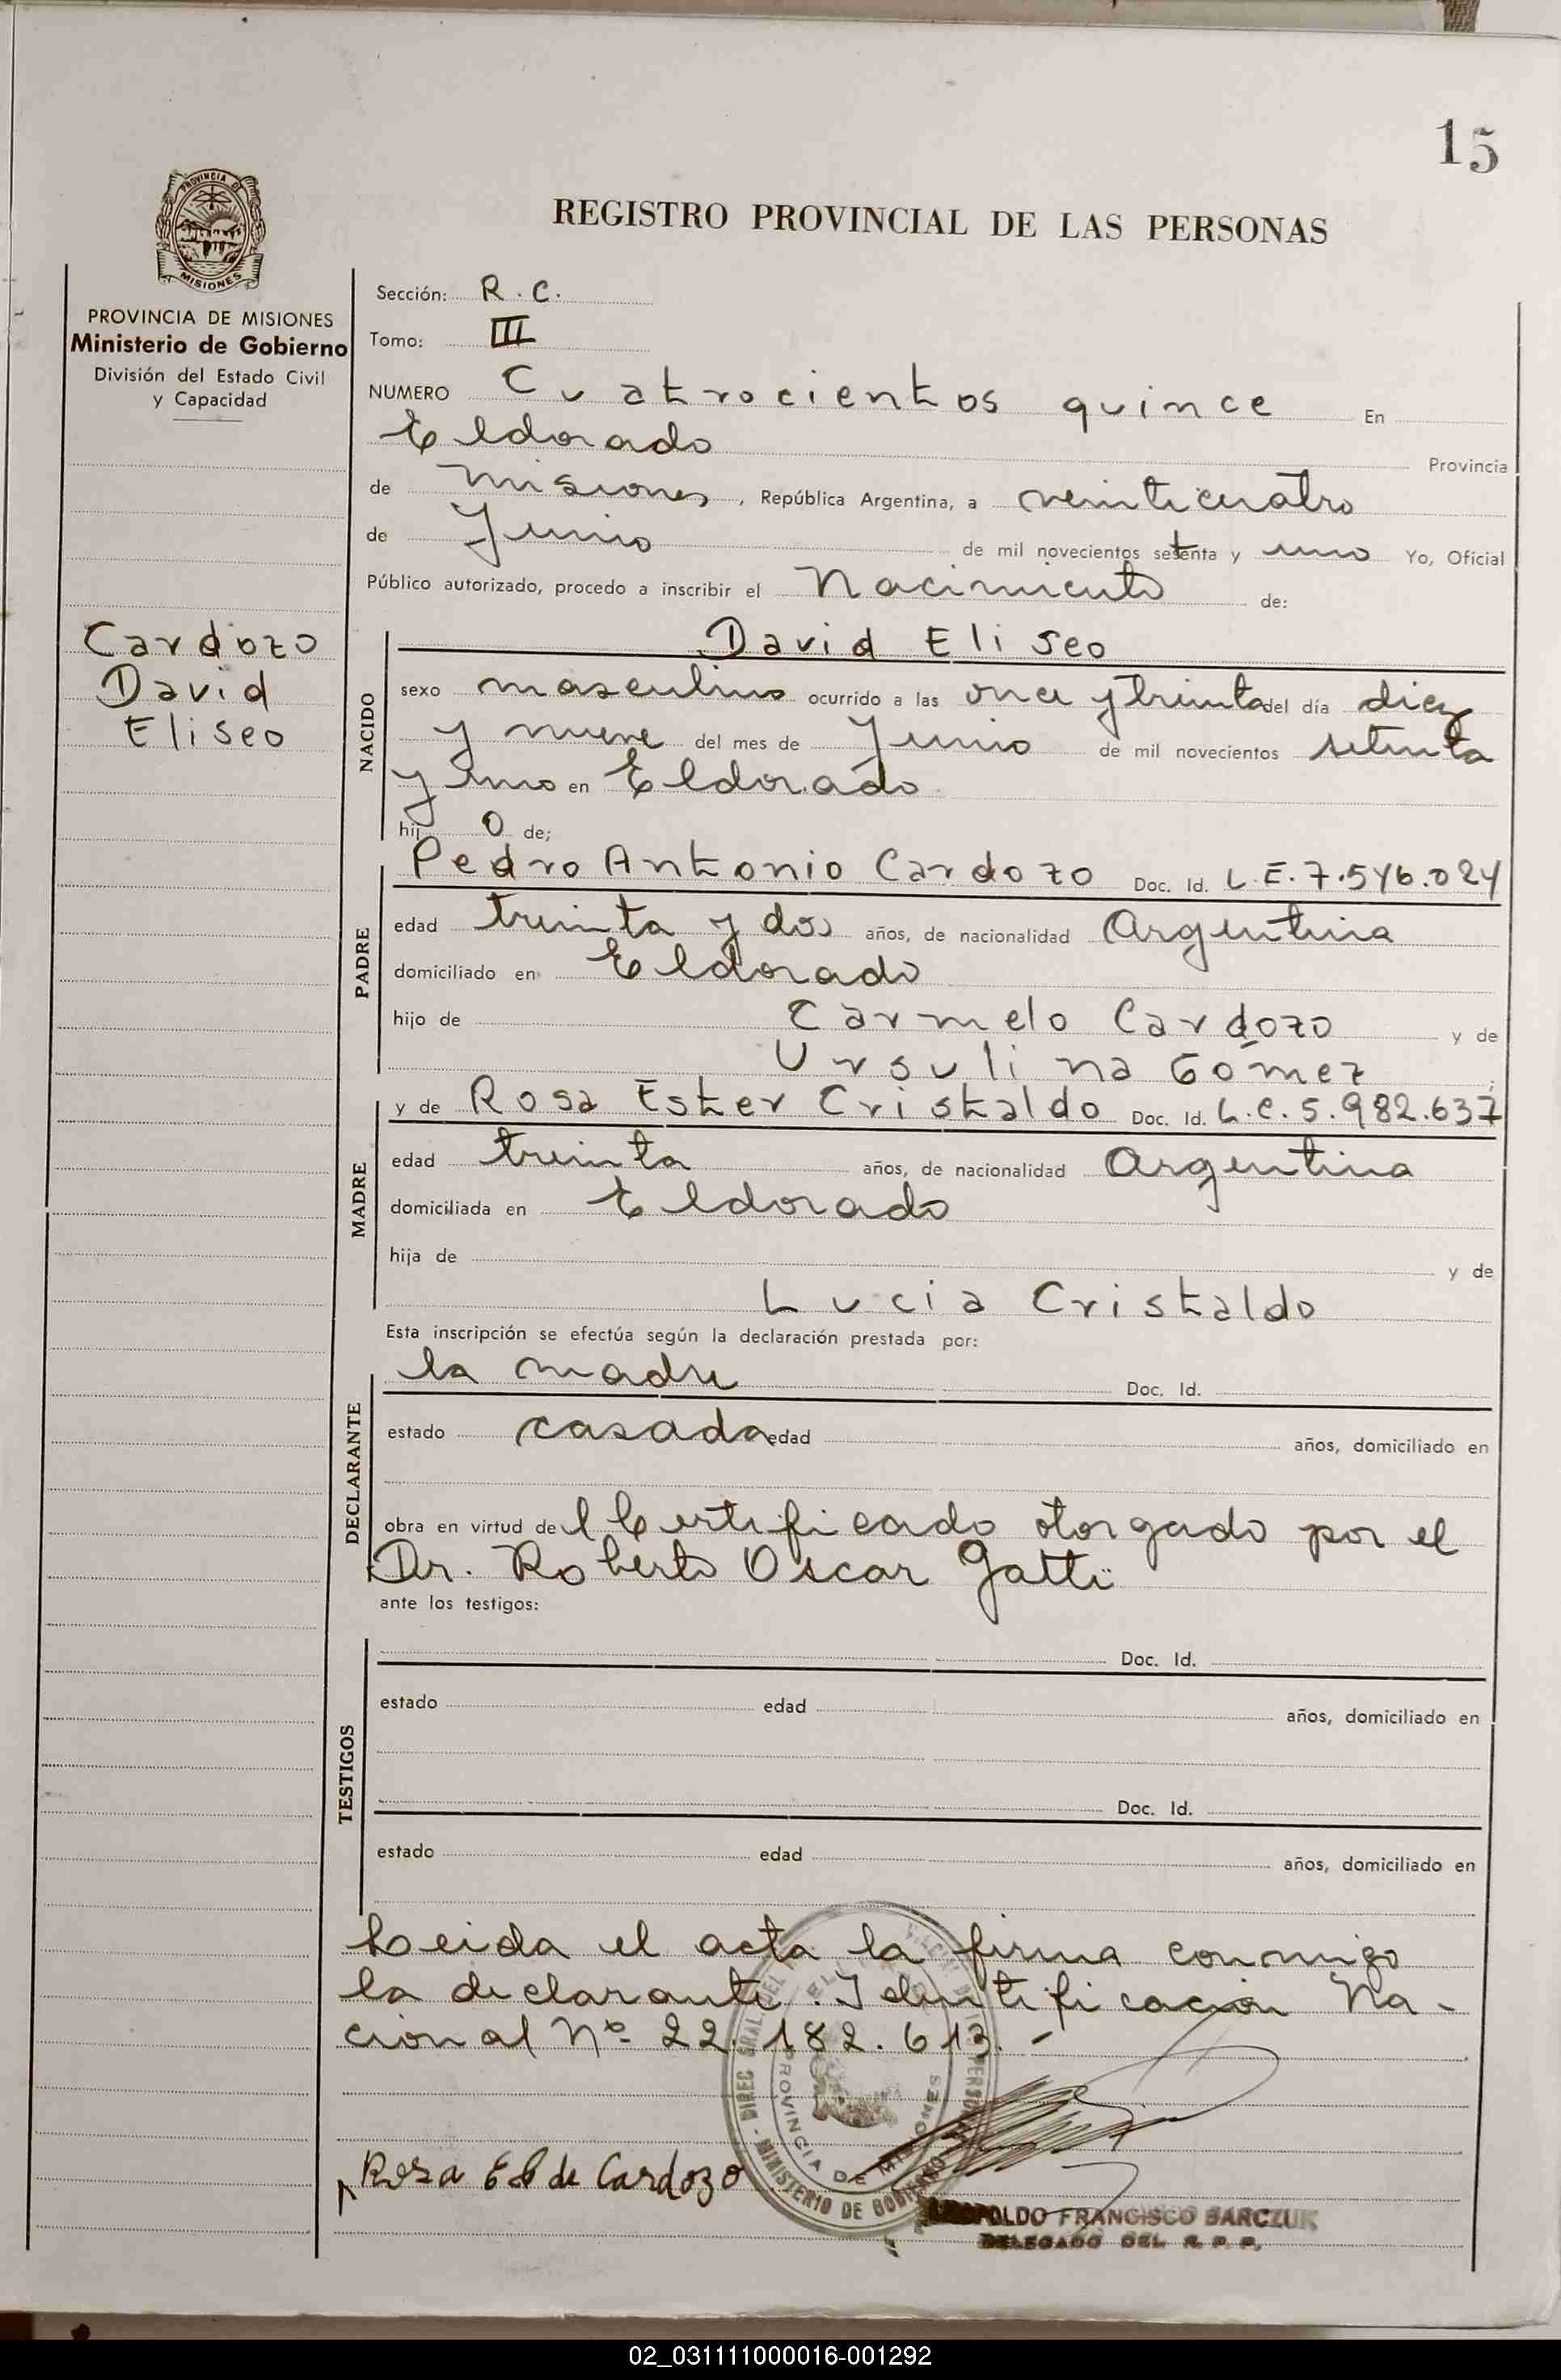 15
PROVINCIA DE
MISIONES
REGISTRO PROVINCIAL DE LAS PERSONAS
PROVINCIA DE MISIONES
Ministerio de Gobierno
División del Estado Civil
y Capacidad
Cardozo
David
Eliseo
Sección: R. C.
Tomo: III
NUMERO Cuatrocientos quince En
Eldorado Provincia
de Misiones, República Argentina, a veinticuatro
de Junio de mil novecientos setenta y uno Yo, Oficial
Público autorizado, procedo a inscribir el Nacimiento de:
NACIDO
David Eliseo
sexo masculino ocurrido a las once y treinta del día diez
y nueve del mes de Junio de mil novecientos setenta
y uno en Eldorado
hijo de;
PADRE
Pedro Antonio Cardozo Doc. Id. L.E. 7.546.024
edad treinta y dos años, de nacionalidad Argentina
domiciliado en Eldorado
hijo de Carmelo Cardozo y de
Ursulina Gómez;
MADRE
y de Rosa Ester Cristaldo Doc. Id. L.C. 5.982.637
edad treinta años, de nacionalidad Argentina
domiciliada en Eldorado
hija de y de
Lucia Cristaldo
Esta inscripción se efectúa según la declaración prestada por:
DECLARANTE
la madre Doc. Id.
estado casada edad años, domiciliado en
obra en virtud del Certificado otorgado por el
Dr. Roberto Oscar Gatti
ante los testigos:
TESTIGOS
Doc. Id.
estado edad años, domiciliado en
Doc. Id.
estado edad años, domiciliado en
Leida el acta la firma conmigo
la declarante. Identificación Na-
cional Nº 22.182.613.-
PROVINCIA DE MISIONES
MINISTERIO DE GOBIERNO
Rosa E C de Cardozo
LEOPOLDO FRANCISCO BARCZUK
DELEGADO DEL R. P. P.
02_031111000016-001292